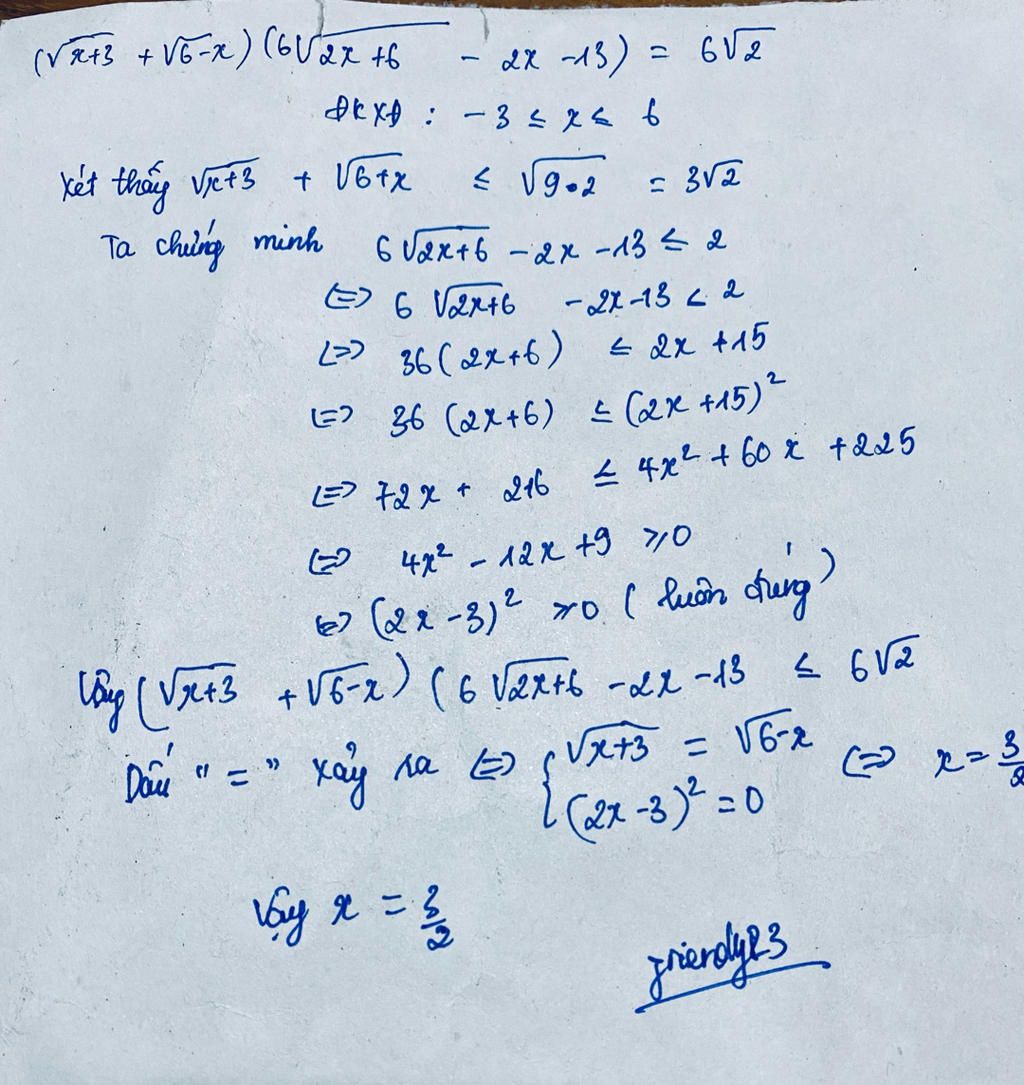 (√x+3 + √6-x) (6√2x+6 - 2x -13) = 6√2
ĐKXĐ : -3 ≤ x ≤ 6
Xét thấy √x+3 + √6+x ≤ √9.2 = 3√2
Ta chứng minh 6√2x+6 - 2x -13 ≤ 2
⇔ 6 √2x+6 - 2x -13 < 2
⇔ 36(2x+6) ≤ 2x +15
⇔ 36 (2x+6) ≤ (2x +15)²
⇔ 72x + 216 ≤ 4x² + 60x + 225
⇔ 4x² - 12x +9 ≥0
⇔ (2x -3)² ≥0 ( luôn đúng)
Vậy (√x+3 + √6-x) (6 √2x+6 - 2x -13 ≤ 6√2
Dấu "=" xảy ra ⇔ { √x+3 = √6-x ⇔ x = 3/2
(2x -3)² = 0
Vậy x = 3/2
Friendly23